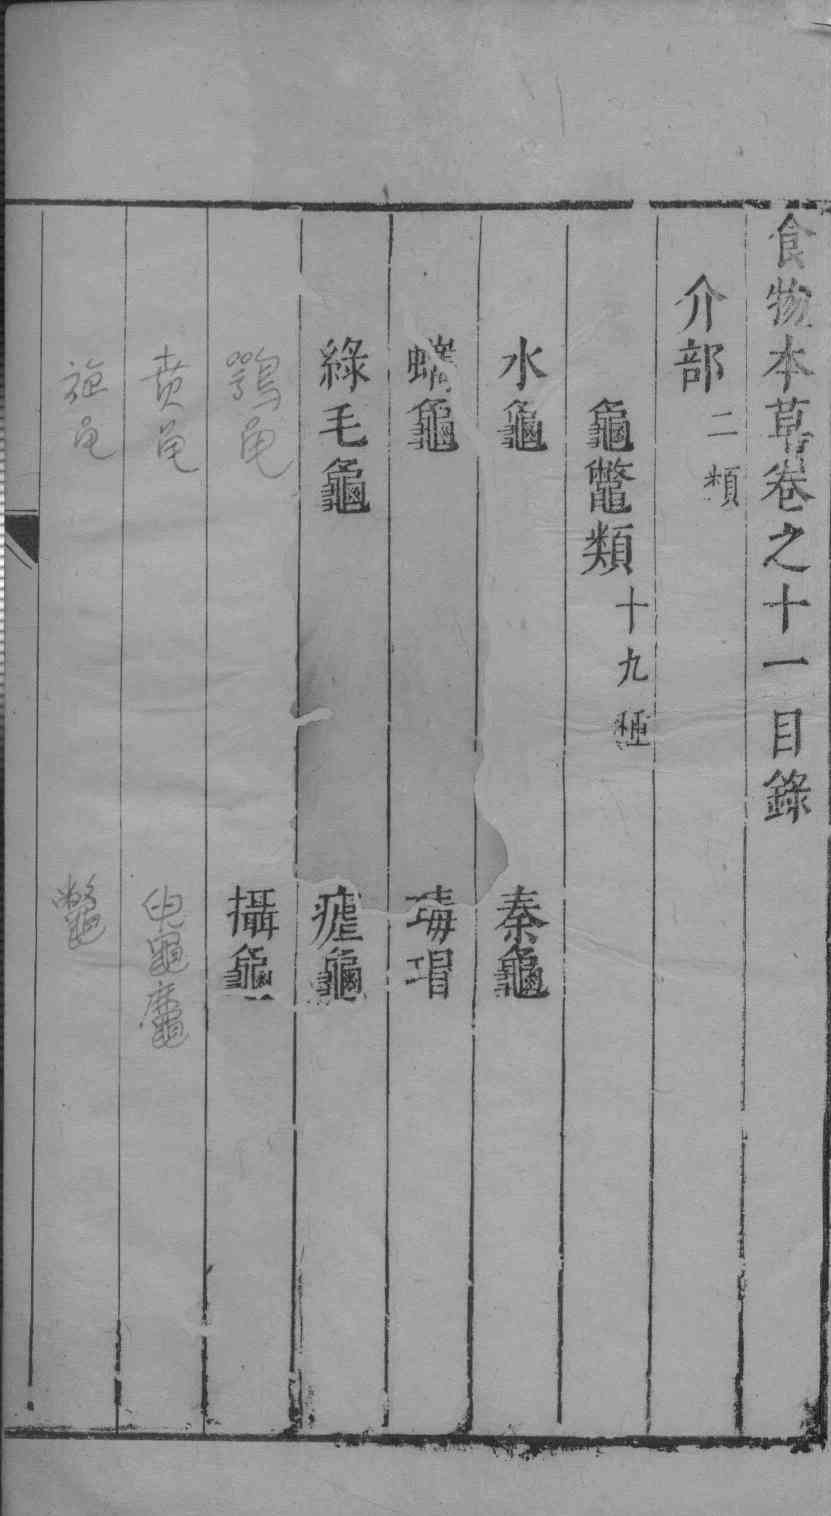 食物本草卷之十一目錄
介部 二類
龜鼈類 十九種
水龜 秦龜
蠵龜 瑇瑁
綠毛龜 瘧龜
鶚龟 攝龜
贲龟
旋龟 鼈